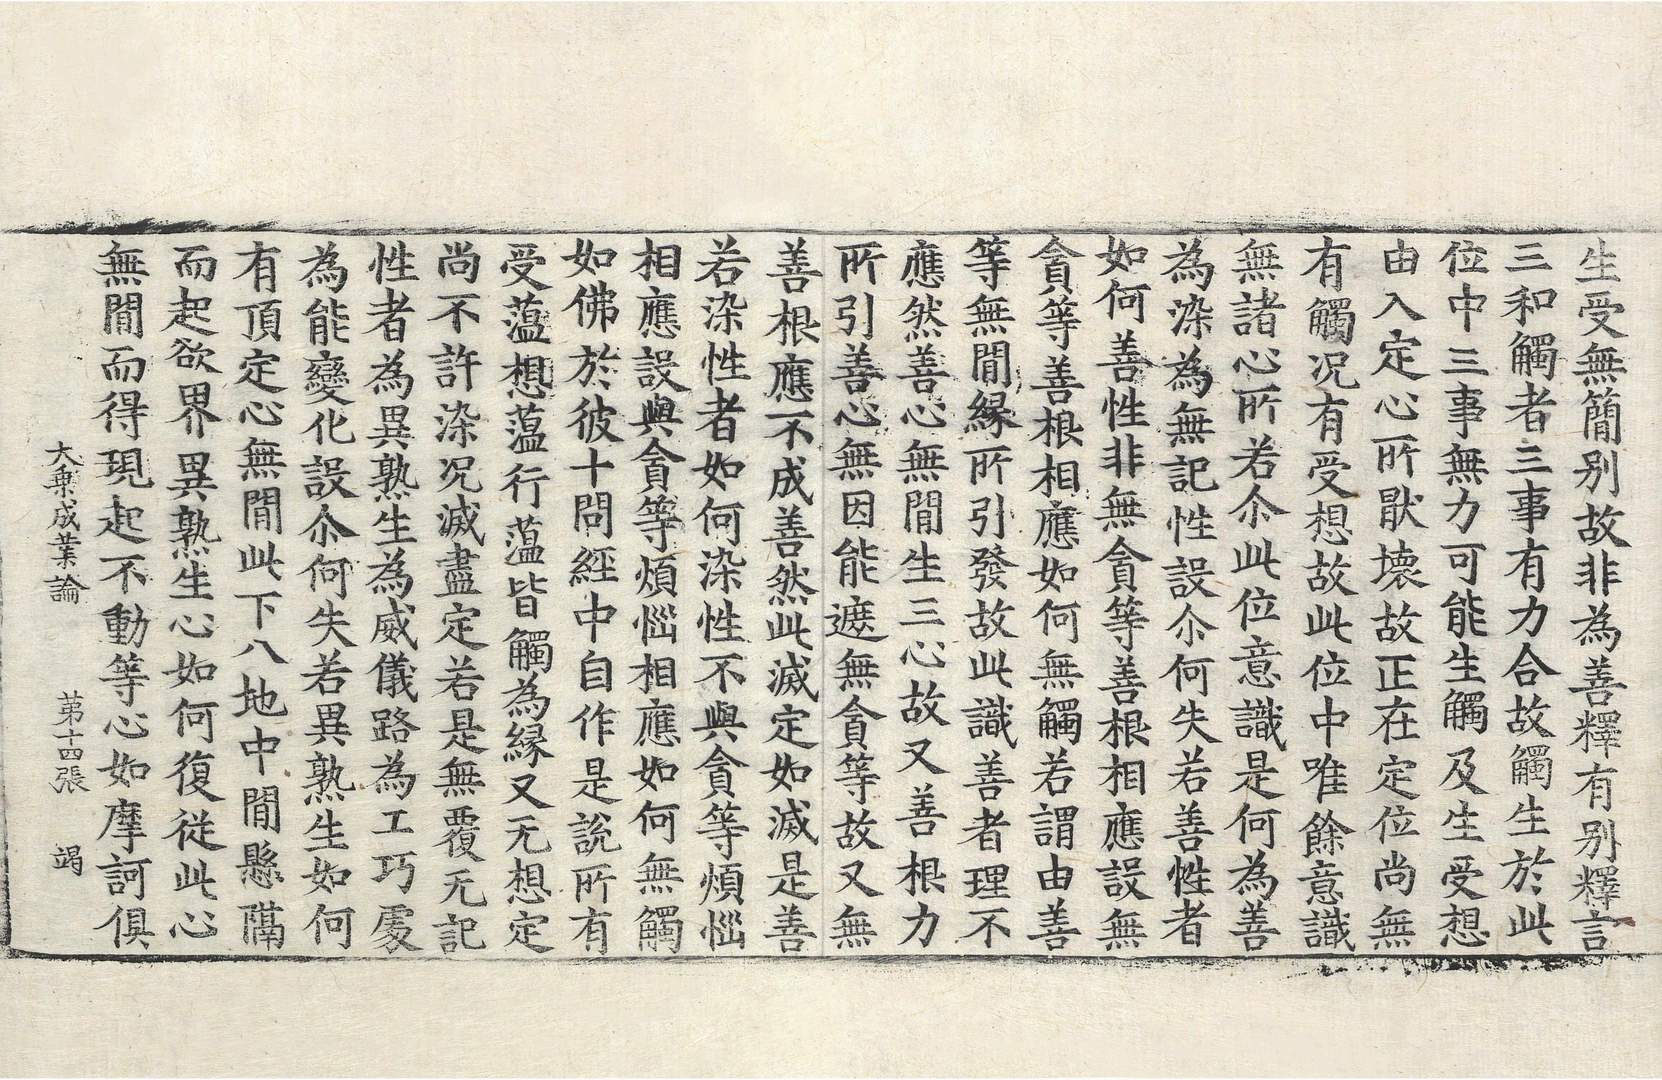 生受無簡別故非為善釋有別釋言
三和觸者三事有力合故觸生於此
位中三事無力可能生觸及生受想
由入定心所猒壞故正在定位尚無
有觸况有受想故此位中唯餘意識
無諸心所若尒此位意識是何為善
為染為無記性設尒何失若善性者
如何善性非無貪等善根相應設無
貪等善根相應如何無觸若謂由善
等無閒縁所引發故此識善者理不
應然善心無閒生三心故又善根力
所引善心無因能遮無貪等故又無
善根應不成善然此滅定如滅是善
若染性者如何染性不與貪等煩惱
相應設與貪等煩惱相應如何無觸
如佛於彼十問經中自作是說所有
受薀想薀行薀皆觸為縁又无想定
尚不許染况滅盡定若是無覆无記
性者為異熟生為威儀路為工巧處
為能變化設尒何失若異熟生如何
有頂定心無閒此下八地中閒懸隔
而起欲界異熟生心如何復從此心
無閒而得現起不動等心如摩訶俱
大乗成業論 第十四張 竭